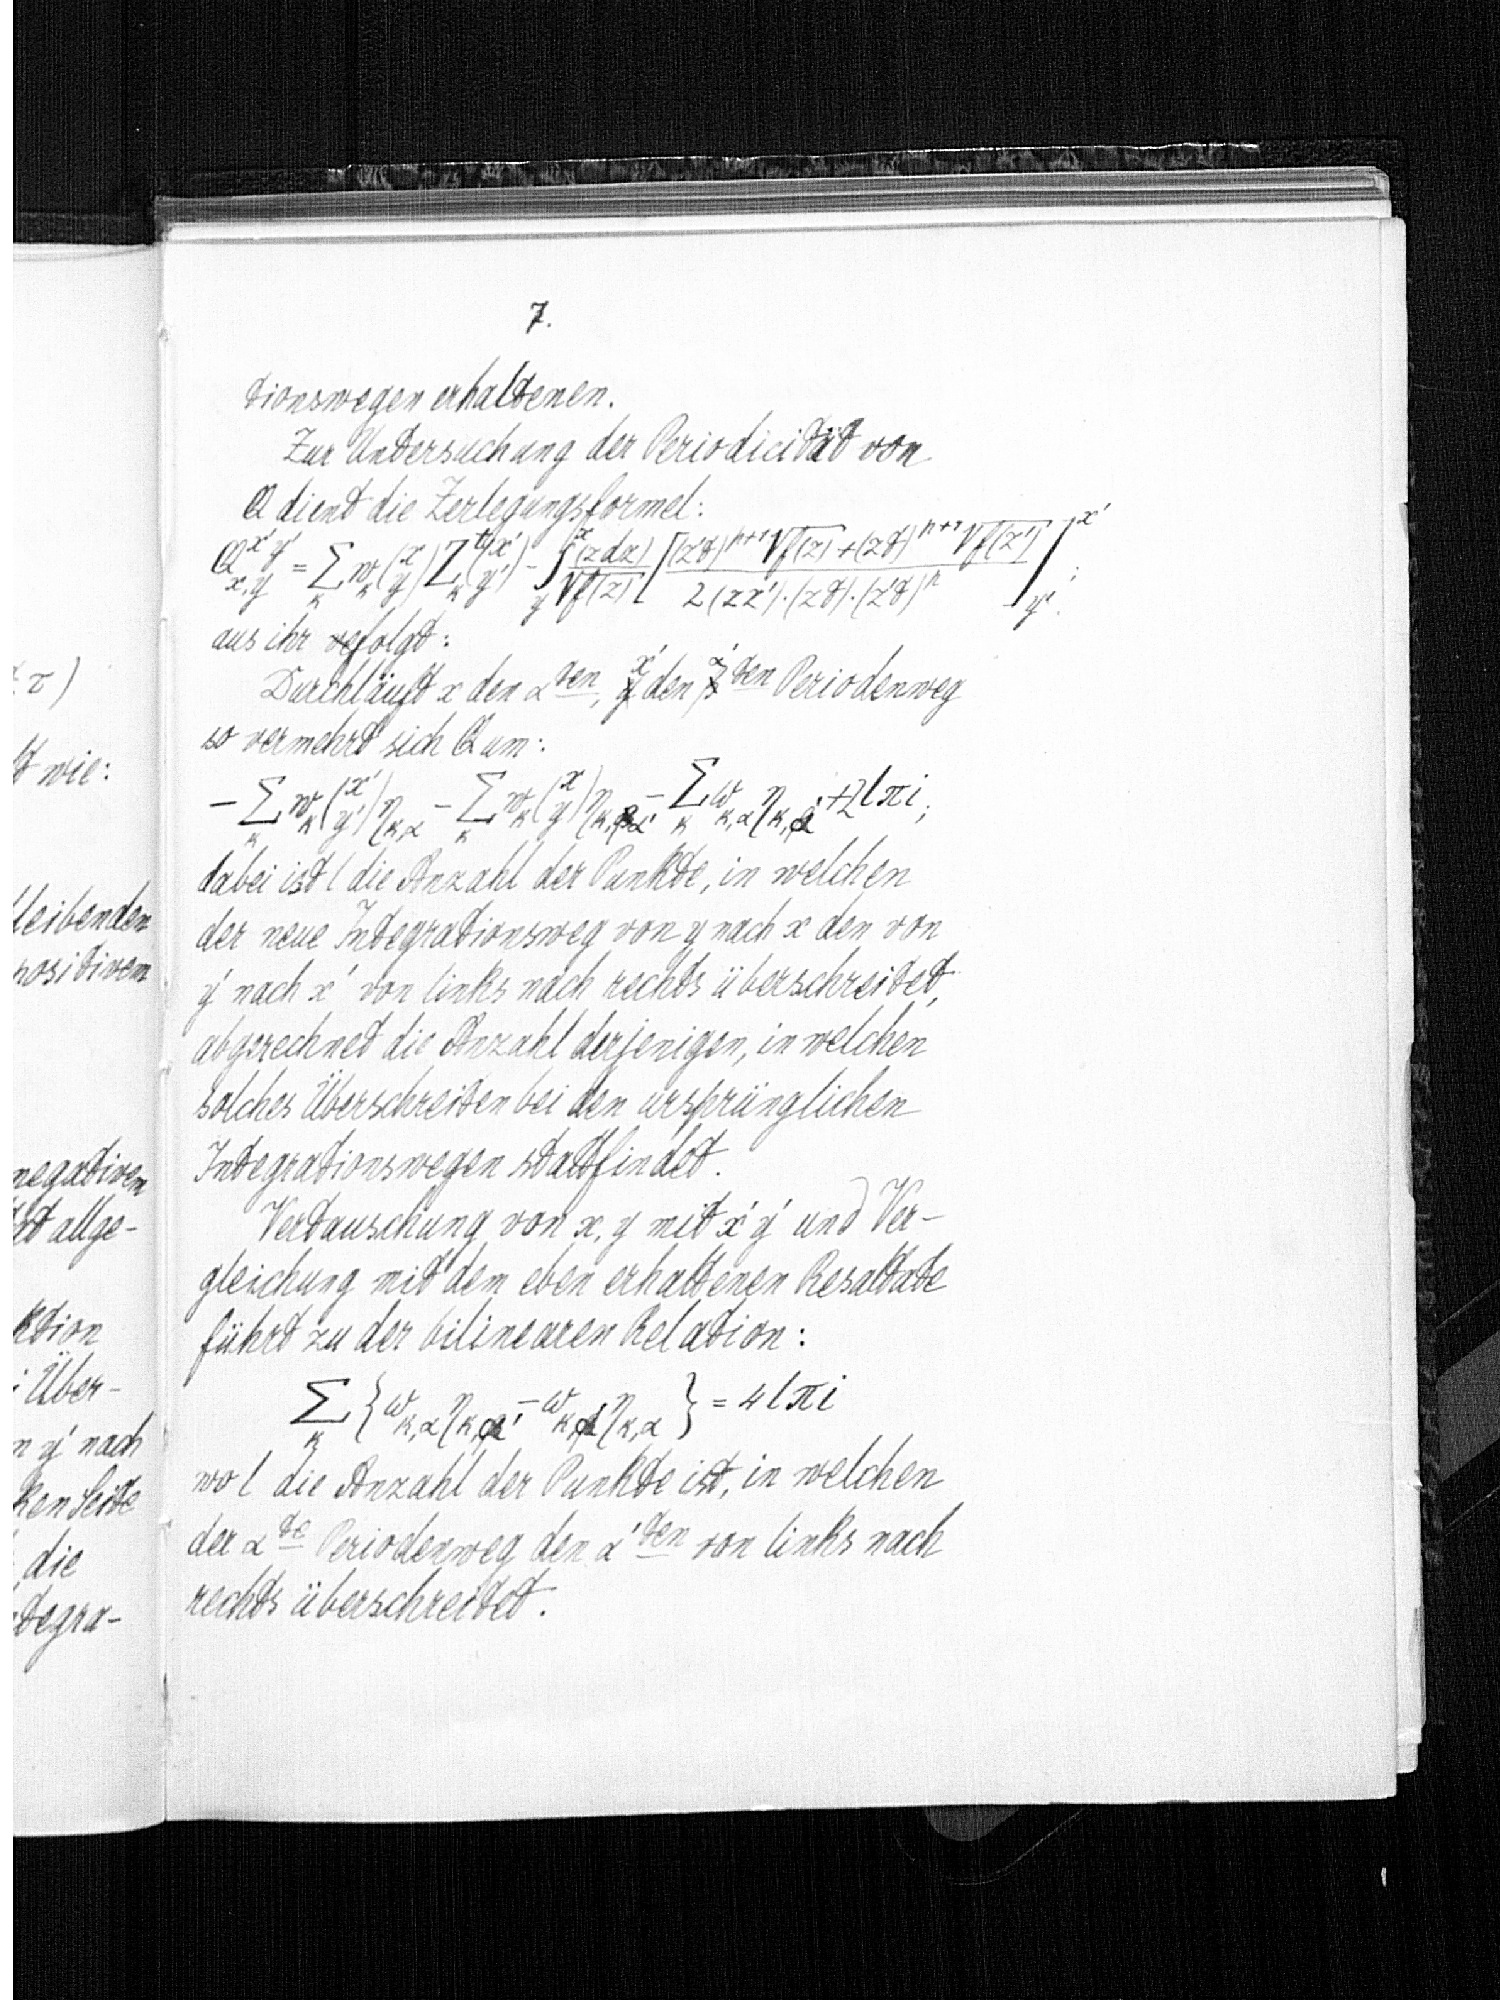 t τ)
t wie:
bleibenden
positivem
negativem
ist allge-
ktion
i Über-
n y' nach
ken Seite
, die
ntegra-
7.
tionswegen erhaltenen.
Zur Untersuchung der Periodicität von
Q dient die Zerlegungsformel:
Q^{x'y'}_{x,y} = Σ_κ w_κ(x y) Z_κ^{ty}(x' y') - ∫_y^x (zdz)/√f(z) [ ((z'ϑ)^{n+1} √f(z) + (zϑ)^{n+1} √f(z')) / (2(zz')·(zϑ)·(z'ϑ)^n) ]_{y'}^{x'} ;
aus ihr folgt:
Durchläuft x den α ten, x' den α' ten Periodenweg
so vermehrt sich Q um:
- Σ_κ w_κ(x' y') η_{κ,α} - Σ_κ w_κ(x y) η_{κ,α'} - Σ_κ ω_{κ,α} η_{κ,α'} + 2lπi;
dabei ist l die Anzahl der Punkte, in welchen
der neue Integrationsweg von y nach x den von
y' nach x' von links nach rechts überschreitet,
abgerechnet die Anzahl derjenigen, in welchen
solches Überschreiten bei den ursprünglichen
Integrationswegen stattfindet.
Vertauschung von x, y mit x' y' und Ver-
gleichung mit dem eben erhaltenen Resultate
führt zu der bilinearen Relation:
Σ_κ {ω_{κ,α} η_{κ,α'} - ω_{κ,α'} η_{κ,α}} = 4lπi
wo l die Anzahl der Punkte ist, in welchen
der α te Periodenweg den α' ten von links nach
rechts überschreitet.